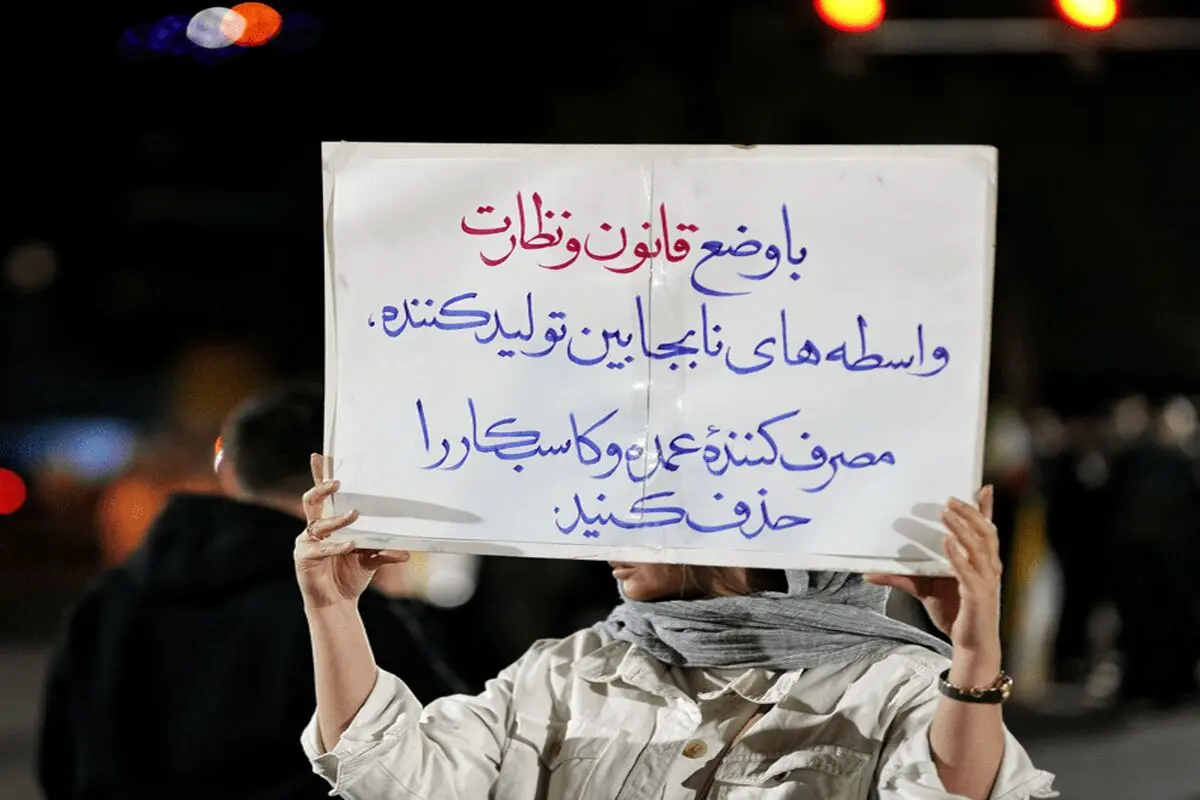 با وضع قانون و نظارت
واسطه های نابجا بین تولیدکننده،
مصرف کنندهٔ عمده و کاسبکار را
حذف کنید